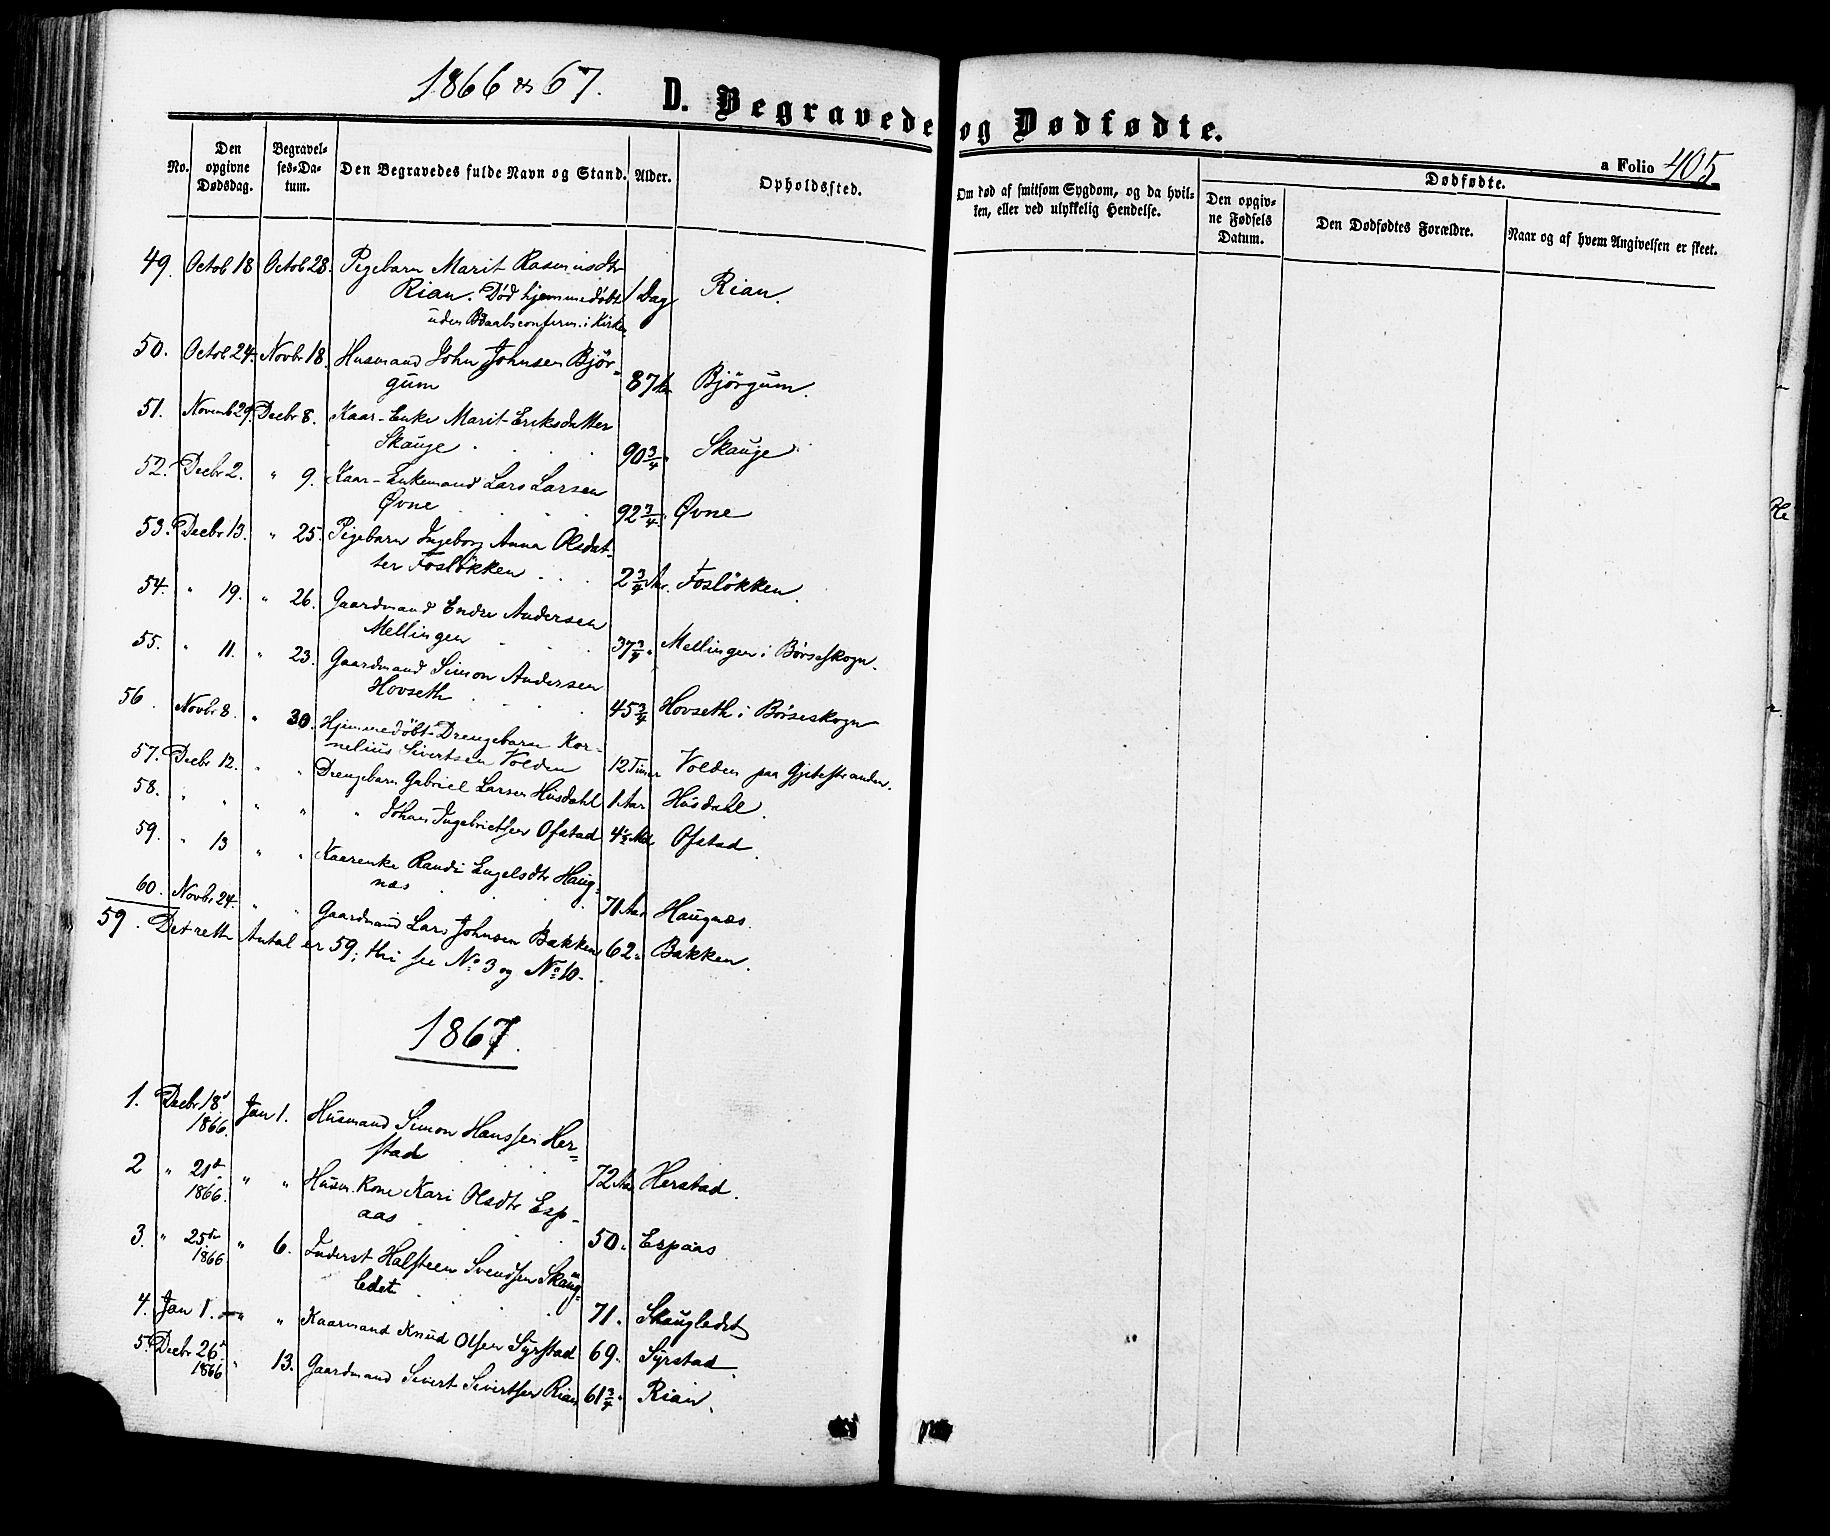 1866 & 67.
D. Begravede og Dødfødte.
a Folio 405
No.
Den opgivne Dødsdag.
Begravelses-Datum.
Den Begravedes fulde Navn og Stand.
Alder.
Opholdssted.
Om død af smitsom Sygdom, og da hvilken, eller ved ulykkelig Hendelse.
Dødfødte.
Den opgivne Fødsels Datum.
Den Dødfødtes Forældre.
Naar og af hvem Angivelsen er skeet.
49. Octob 18 Octob 28. Pigebarn Marit Rasmusdtr
Rian. Død hjemmedøbt 1 Dag Rian.
uden Daabsconferm. i Kirken
50. Octob 24. Novbr 18. Husmand John Johnsen Björ=
gum 87 Aar Bjørgum.
51. Novemb 29. Decbr 8. Kaar-Enke Marit Eriksdatter
Skauge 90 3/4 " Skauge
52. Decbr 2. " 9. Kaar-Enkemand Lars Larsen
Øvne 92 3/4 " Øvne
53. Decbr 13. " 25. Pigebarn Ingeborg Anna Olsdat-
ter Fosløkken 2 3/4 Aar. Fosløkken.
54. " 19. " 26. Gaardmand Endre Andersen
Mellingen 37 3/4 " Mellingen i Børseskogn.
55. " 11. " 23. Gaardmand Simon Andersen
Hovseth 45 3/4 Hovseth i Børseskogn
56. Novbr 8. " 30. Hjemmedöbt Drengebarn Kor-
nelius Sivertsen Volden 12 Timer Volden paa Gjetestranden.
57. Decbr 12. " " Drengebarn Gabriel Larsen Husdahl 1 Aar Husdahl.
58. " " " " " Johan Ingebrigtsen Ofstad 4 1/2 Md Ofstad.
59. " 13 " " Kaarenke Randi Engelsdtr Haug-
næs 71 Aar Haugnæs.
60. Novbr 24. " " Gaardmand Lars Johnsen Bakken 62 " Bakken.
59. Det rette Antal er 59; thi see No 3 og No 10.
1867.
1. Decbr 18d 1866. Jan 1. Husmand Simon Hanssen Her=
stad 72 Aar Herstad.
2 " 21d 1866. " " Husm. Kone Kari Olsdtr Esp-
aas 50 " Espaas
3. " 25de 1866 " 6. Inderst Halsteen Svendsen Skaug-
ledet 71. Skaugledet
4. Jan 1. " " Kaarmand Knud Olsen Syrstad 69. Syrstad.
5. Decbr 26d 1866 " 13. Gaardmand Sivert Sivertsen Rian 61 3/4 " Rian.